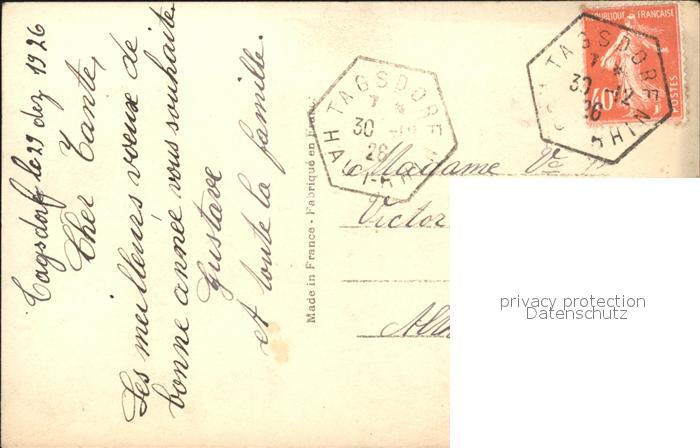 Tagsdorf le 29 dez 1926
Cher Tante,
Les meilleurs vœux de
bonne année vous souhaite
Gustave
et toute la famille.
Made in France - Fabriqué en France
TAGSDORF
7 *
30 -12
26
HAUT-RHIN
RÉPUBLIQUE FRANÇAISE
40c
POSTES
TAGSDORF
7 *
30 -12
26
RHIN
Madame Vve
Victor
privacy protection
Datenschutz